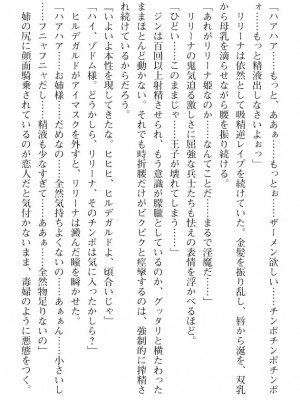 「ハアハア……もっと、ああぁ……もっとぉ……ザーメン欲しい……チンポチンポチンポ
ォ……もっと精液出しなさいよぉっ」
リリーナは依然として吸精逆レイプを続けていた。金髪を振り乱し、唇から涎を、双乳
から母乳を滴らせながら腰を振り続ける。
「あれがリリーナ姫なのか……なんてことだ……まるで淫魔だ……」
リリーナの鬼気迫る激しさに屈強な兵士たちも怯えの表情を浮かべるほど。
「ひどい……このままじゃ……王子が壊れてしまう……」
ジンは百回以上射精させられ、もう意識が朦朧としているのか、グッタリと横たわった
ままほとんど動かない。それでも時折腰だけがビクビクと痙攣するのは、強制的に搾精さ
れ続けているからだろう。
「いよいよ本性を現してきたな。ヒヒヒ、ヒルデガルドよ、頃合いじゃ」
「ハイ、ゾドム様。どうかしら、リリーナ、そのチンポは気に入ったかしら？」
ヒルデガルドがアイマスクを外すと、リリーナは澱んだ瞳を瞬かせた。
「ハアハア……お姉様……だめなの……全然気持ちよくないの……あぁぁん……小さいし
……フニャフニャだし……精液も少なすぎて……ああぁ……全然物足りないの」
姉の尻に顔面騎乗されているのが恋人だと気付かないまま、毒婦のように悪態をつく。